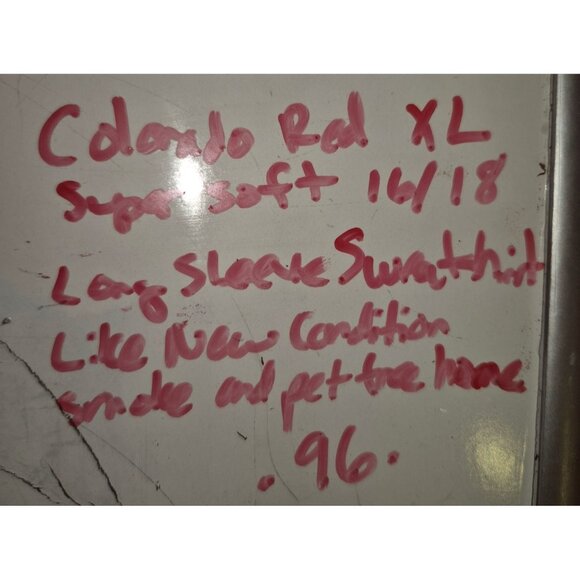 Colorado Red XL
Super soft 16/18
Long Sleeve Sweatshirt
Like New Condition
smoke and pet free home
.96.